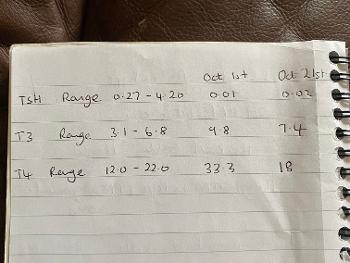 Oct 1st Oct 21st
TSH Range 0.27 - 4.20 0.01 0.02
T3 Range 3.1 - 6.8 9.8 7.4
T4 Range 12.0 - 22.0 33.3 18